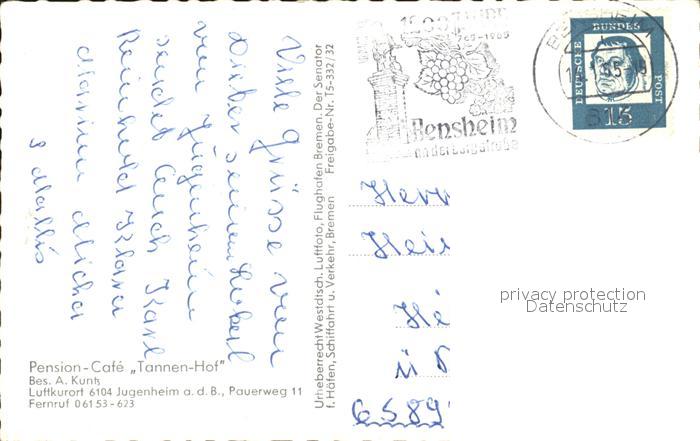 Viele Grüsse vom
Dieter seinem
von Jugenheim
sendet Euch Karl
Reinhold Klara
Pension-Café „Tannen-Hof"
Bes. A. Kuntz
Luftkurort 6104 Jugenheim a. d. B., Pauerweg 11
Fernruf 0 61 53 - 623
Urheberrecht Westdtsch. Luftfoto, Flughafen Bremen. Der Senator
f. Häfen, Schiffahrt u. Verkehr, Bremen Freigabe-Nr. T5-332/32
765-1965
Bensheim
an der Bergstraße
DEUTSCHE BUNDES POST
15
Herr
Hei
Hi
ü
6589
privacy protection
Datenschutz